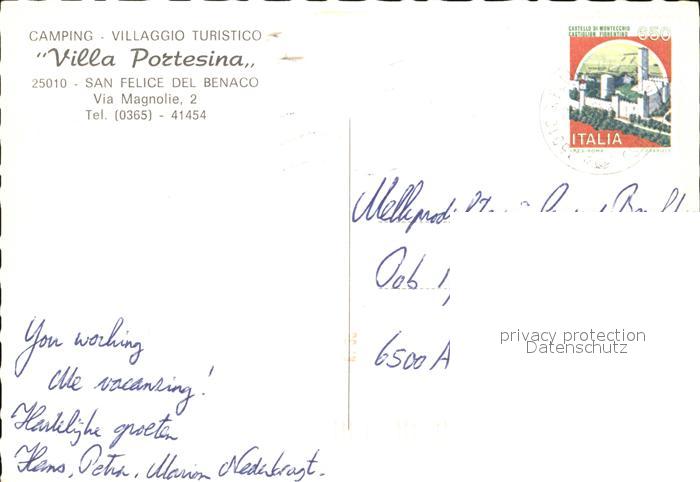 CAMPING - VILLAGGIO TURISTICO
"Villa Portesina"
25010 - SAN FELICE DEL BENACO
Via Magnolie, 2
Tel. (0365) - 41454
CASTELLO DI MONTECCHIO
CASTIGLION FIORENTINO
650
ITALIA
Oob 1,
6500 A
privacy protection
Datenschutz
You working
Me vacansing!
Hartelijke groeten
Hans, Petra, Marion